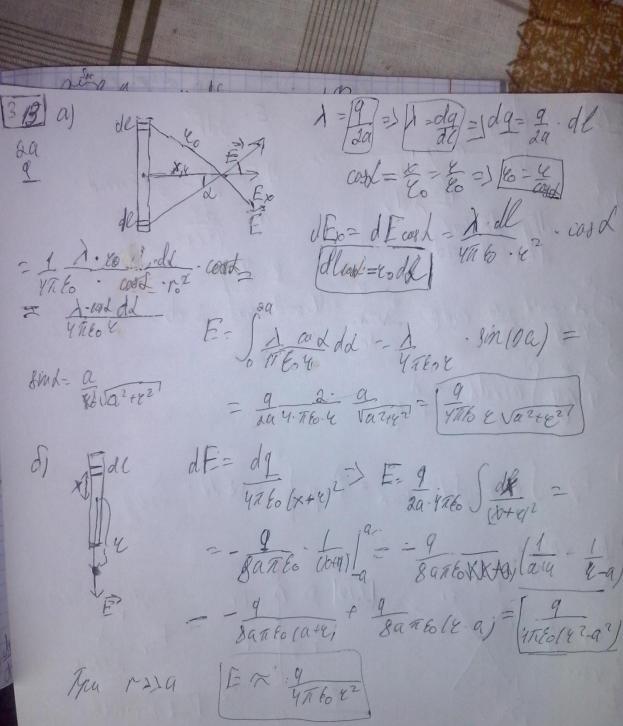 3.13 а)
2a
q
dl
r₀
x, r
α
E⃗
Eₓ
E⃗
dl
λ = q/2a => λ = dq/dl => dq = q/2a · dl
cosα = x/r₀ = r/r₀ => r₀ = r/cosα
dEₓ = dE cosα = λ·dl/4πε₀·r² · cosα
dl cosα = r₀ dα
= 1/4πε₀ · λ·r₀·dα/cosα·r₀² · cosα =
= λ·cosα dα/4πε₀r
E = ∫₀^2a λ cosα dα/4πε₀r = λ/4πε₀r · sin =
sinα = a/√(a²+r²)
= q/2a · 2·a/4·πε₀·r √(a²+r²) = q/4πε₀ r √(a²+r²)
б)
dl
x
r
E⃗
dE = dq/4πε₀(x+r)² => E = q/2a·4πε₀ ∫ dx/(x+r)² =
= - q/8aπε₀ · 1/(x+r) |₋ₐ^a = - q/8aπε₀ (1/a+r - 1/r-a)
= - q/8aπε₀(a+r) + q/8aπε₀(r-a) = q/4πε₀(r²-a²)
При r>>a E ≈ q/4πε₀r²